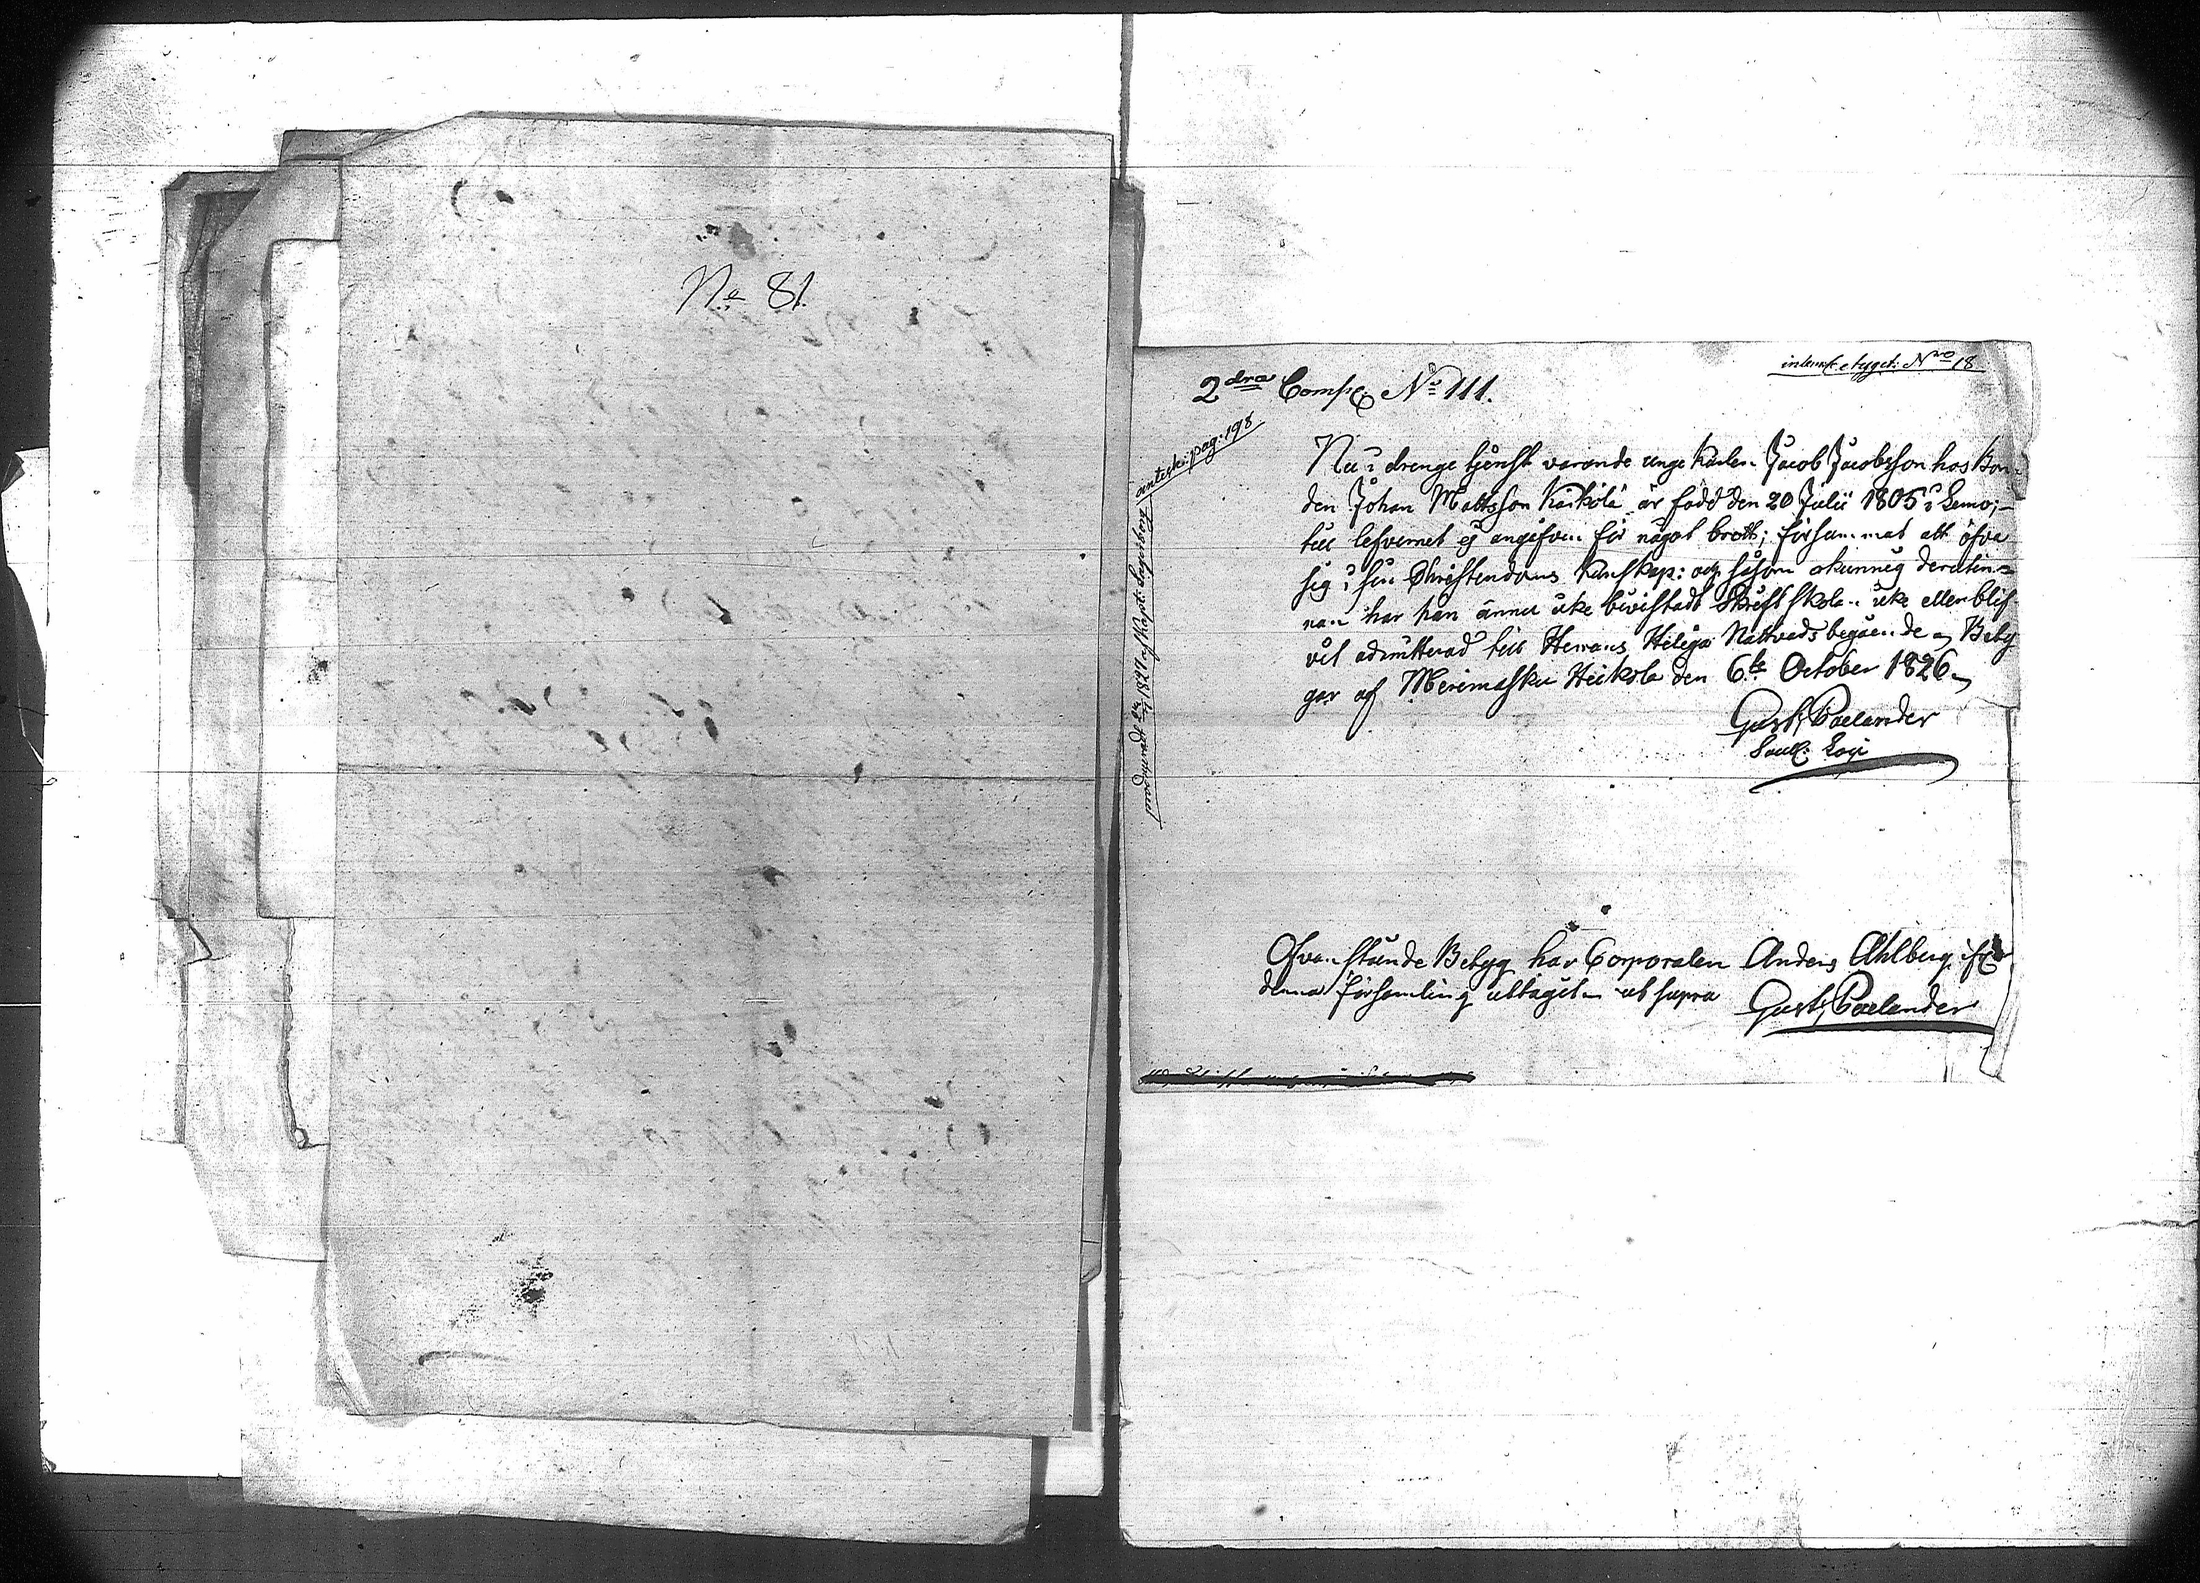 No 81.
2dra Comp: No 111.
antekn: pag: 198
Nu i drenge tjenst varande unge Karlen Jacob Jacobsson hos Bon-
den Johan Mattsson Kaikola är född den 20 Julii 1805 i Lemo;
till lefvernet ej angifven för något brott; försummat att öfva
sig i sin Christendoms kunskap: och såsom okunnig derutin-
nan har han ännu icke bivistadt Skriftskolan icke eller blif-
vit admitterad till Herrans Heliga Nattvards begående Bety-
gar af Merimasku Heikola den 6te October 1826
Gust: Paelander
Sacell: Loci
Ofvanstånde Betyg har Corporalen Anders Ahlberg ifrån
denna församling uttagit ut supra Gust: Paelander